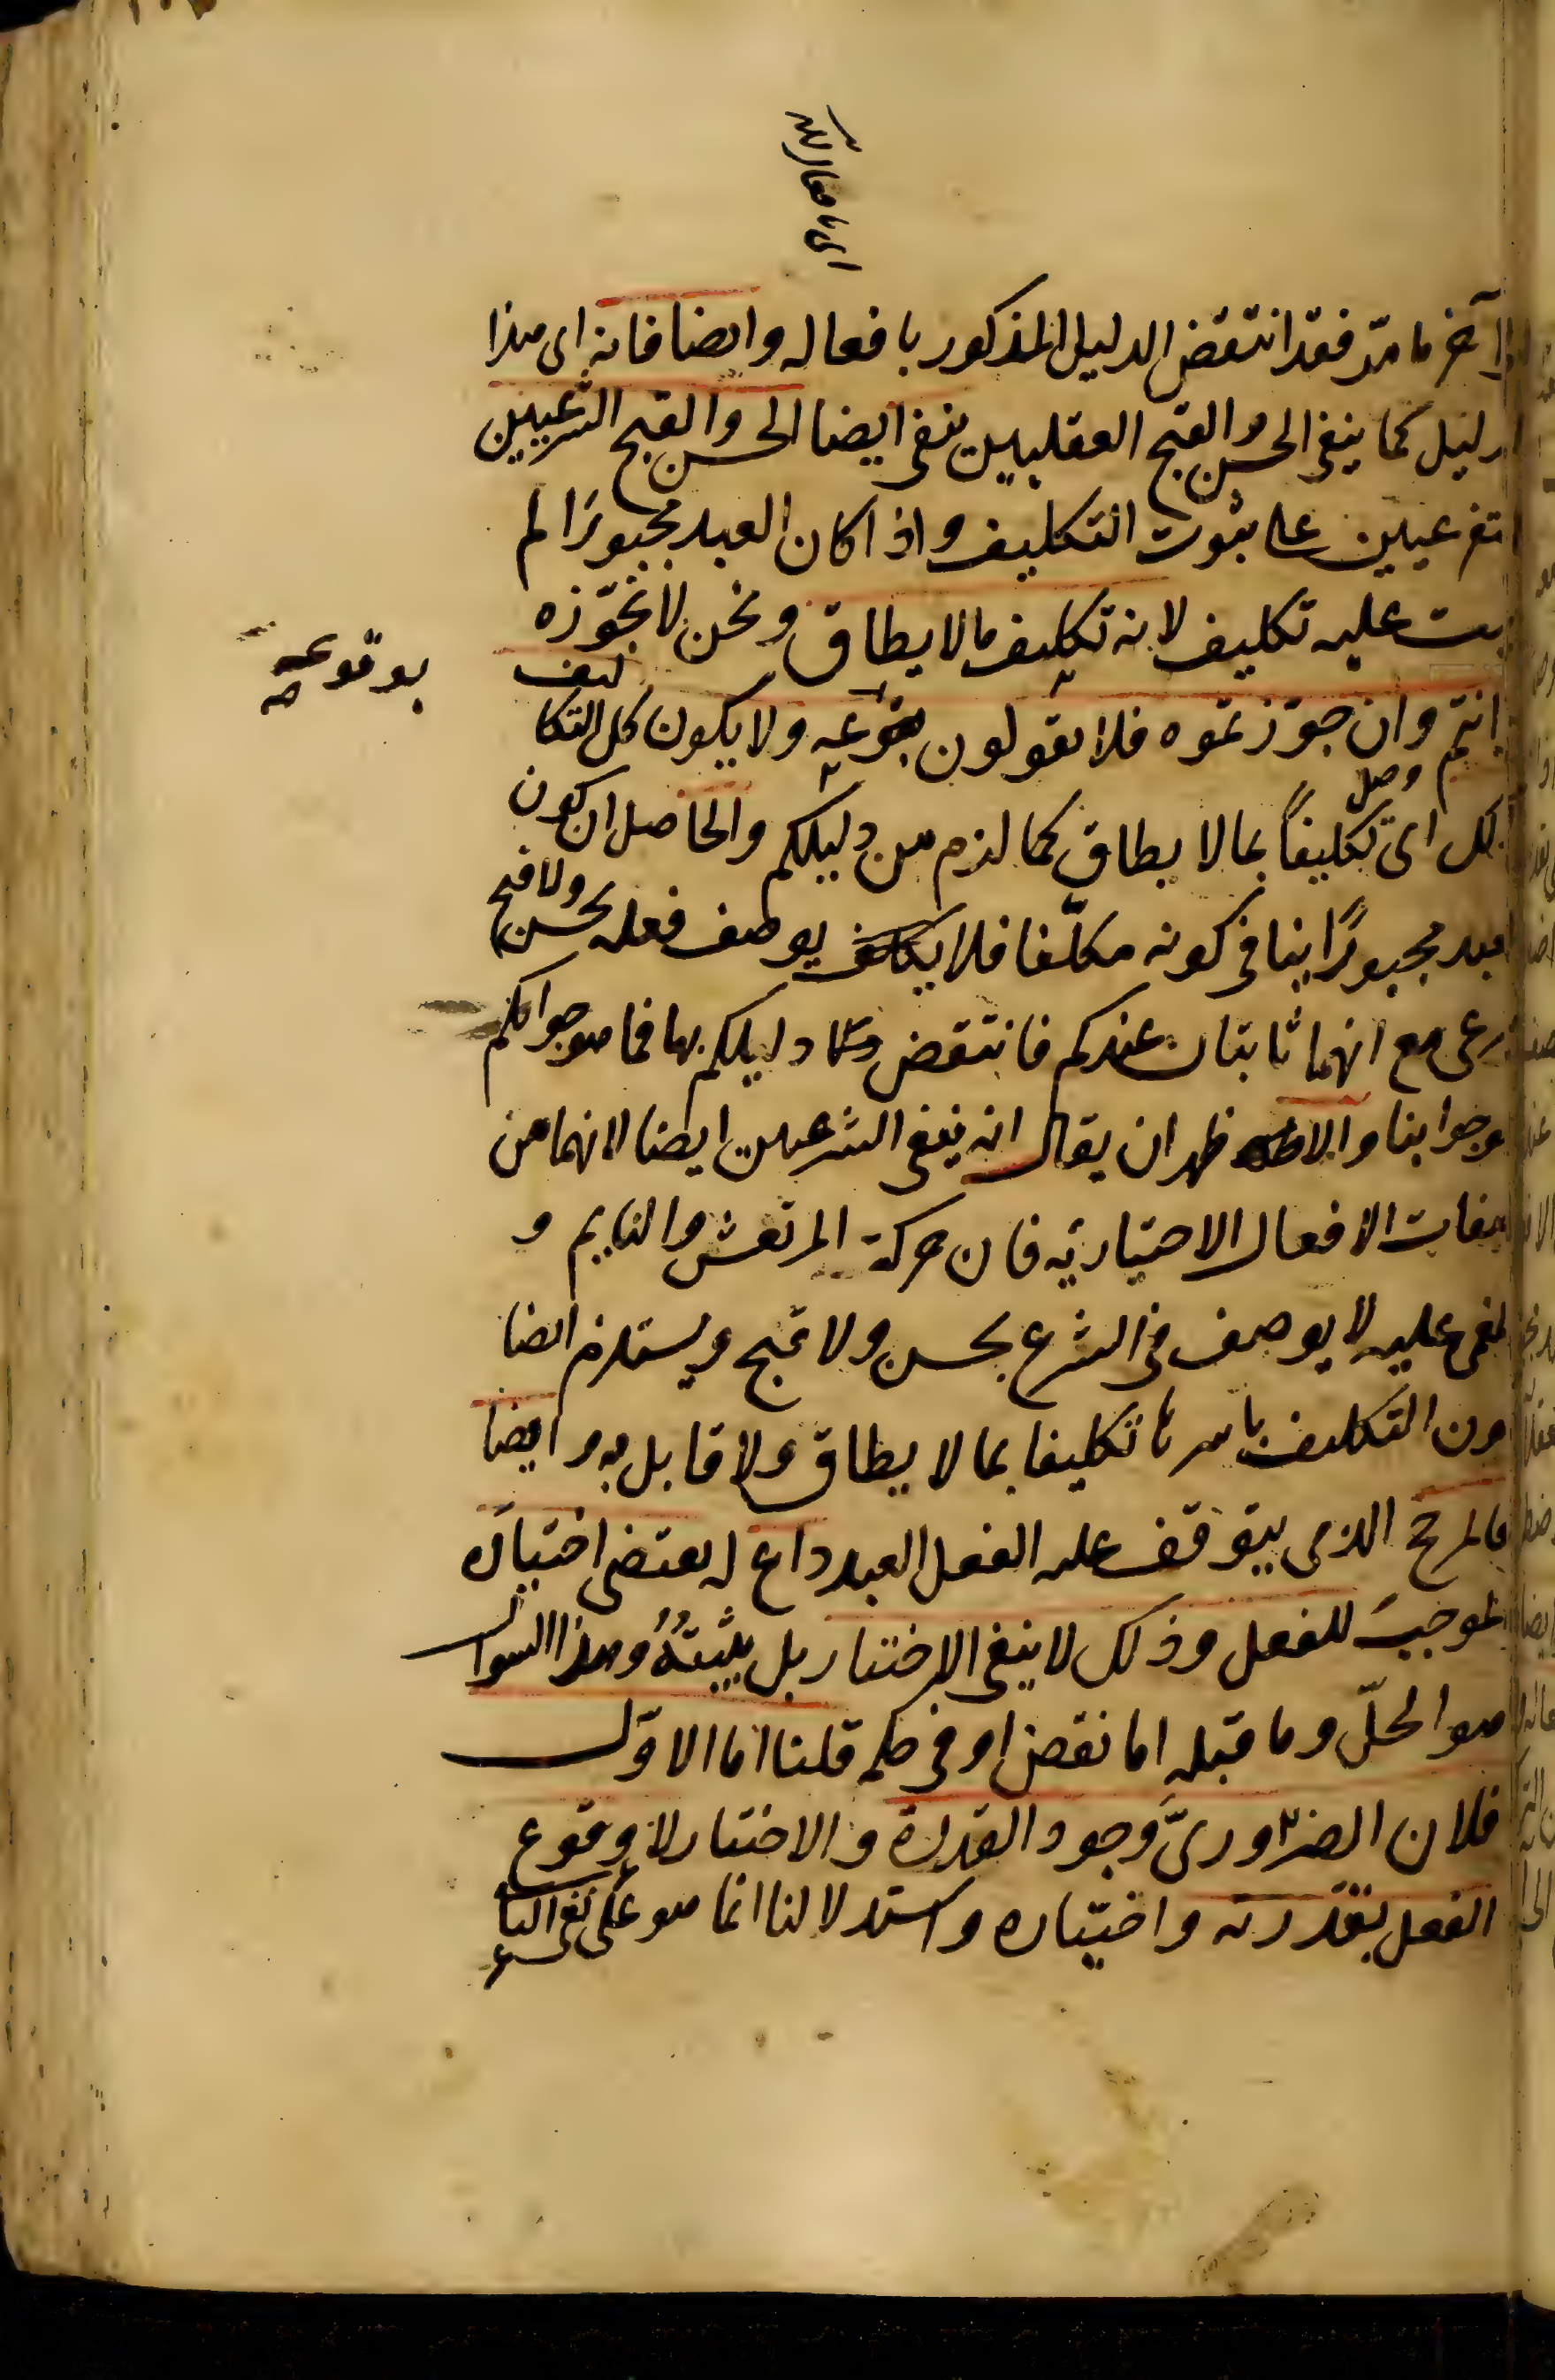 آخر ما مرّ فقد انتقض الدليل المذكور بافعاله وايضا فانه اى هذا
دليل كما ينفى الحسن والقبح العقليين ينفى ايضا الحسن والقبح الشرعيين
تفرعيين على ثبوت التكليف واذا كان العبد مجبورًا لم
عليه تكليف لانه تكليف مالا يطاق ونحن لا نجوّزه
بوقوعه
انتم وان جوّزتموه فلا تقولون بوقوعه ولا يكون كل التكاليف
كل اى تكليفاً بما لا يطاق كما لزم من دليلكم والحاصل ان كون
مجبورًا ينافى كونه مكلّفا فلا يوصف فعله بحسن ولا قبح
رعى مع انهما ثابتان عندكم فانتقض دليلكم بهما فما هو جوابكم
جوابنا والاظهر ان يقال انه ينفى الشرعيين ايضا لانهما من
صفات الافعال الاختياريه فان حركة المرتعش والنايم و
لمغمى عليه لا يوصف فى الشرع بحسن ولا قبح ويستلزم ايضا
ون التكليف باسرها تكليفا بما لا يطاق ولا قابل به وايضا
فالمرجح الذى يتوقف عليه الفعل العبد داع له يقتضى اختياره
لموجب للفعل وذلك لا ينفى الاختيار بل يثبتهُ وهذا السوال
هو الحلّ وما قبله اما نقض او فى حكمه قلنا اما الاوّل
فلان الضرورىّ وجود القدرة والاختيار لا وقوع
الفعل بقدرته واختياره واستدلالنا انما هو على نفى